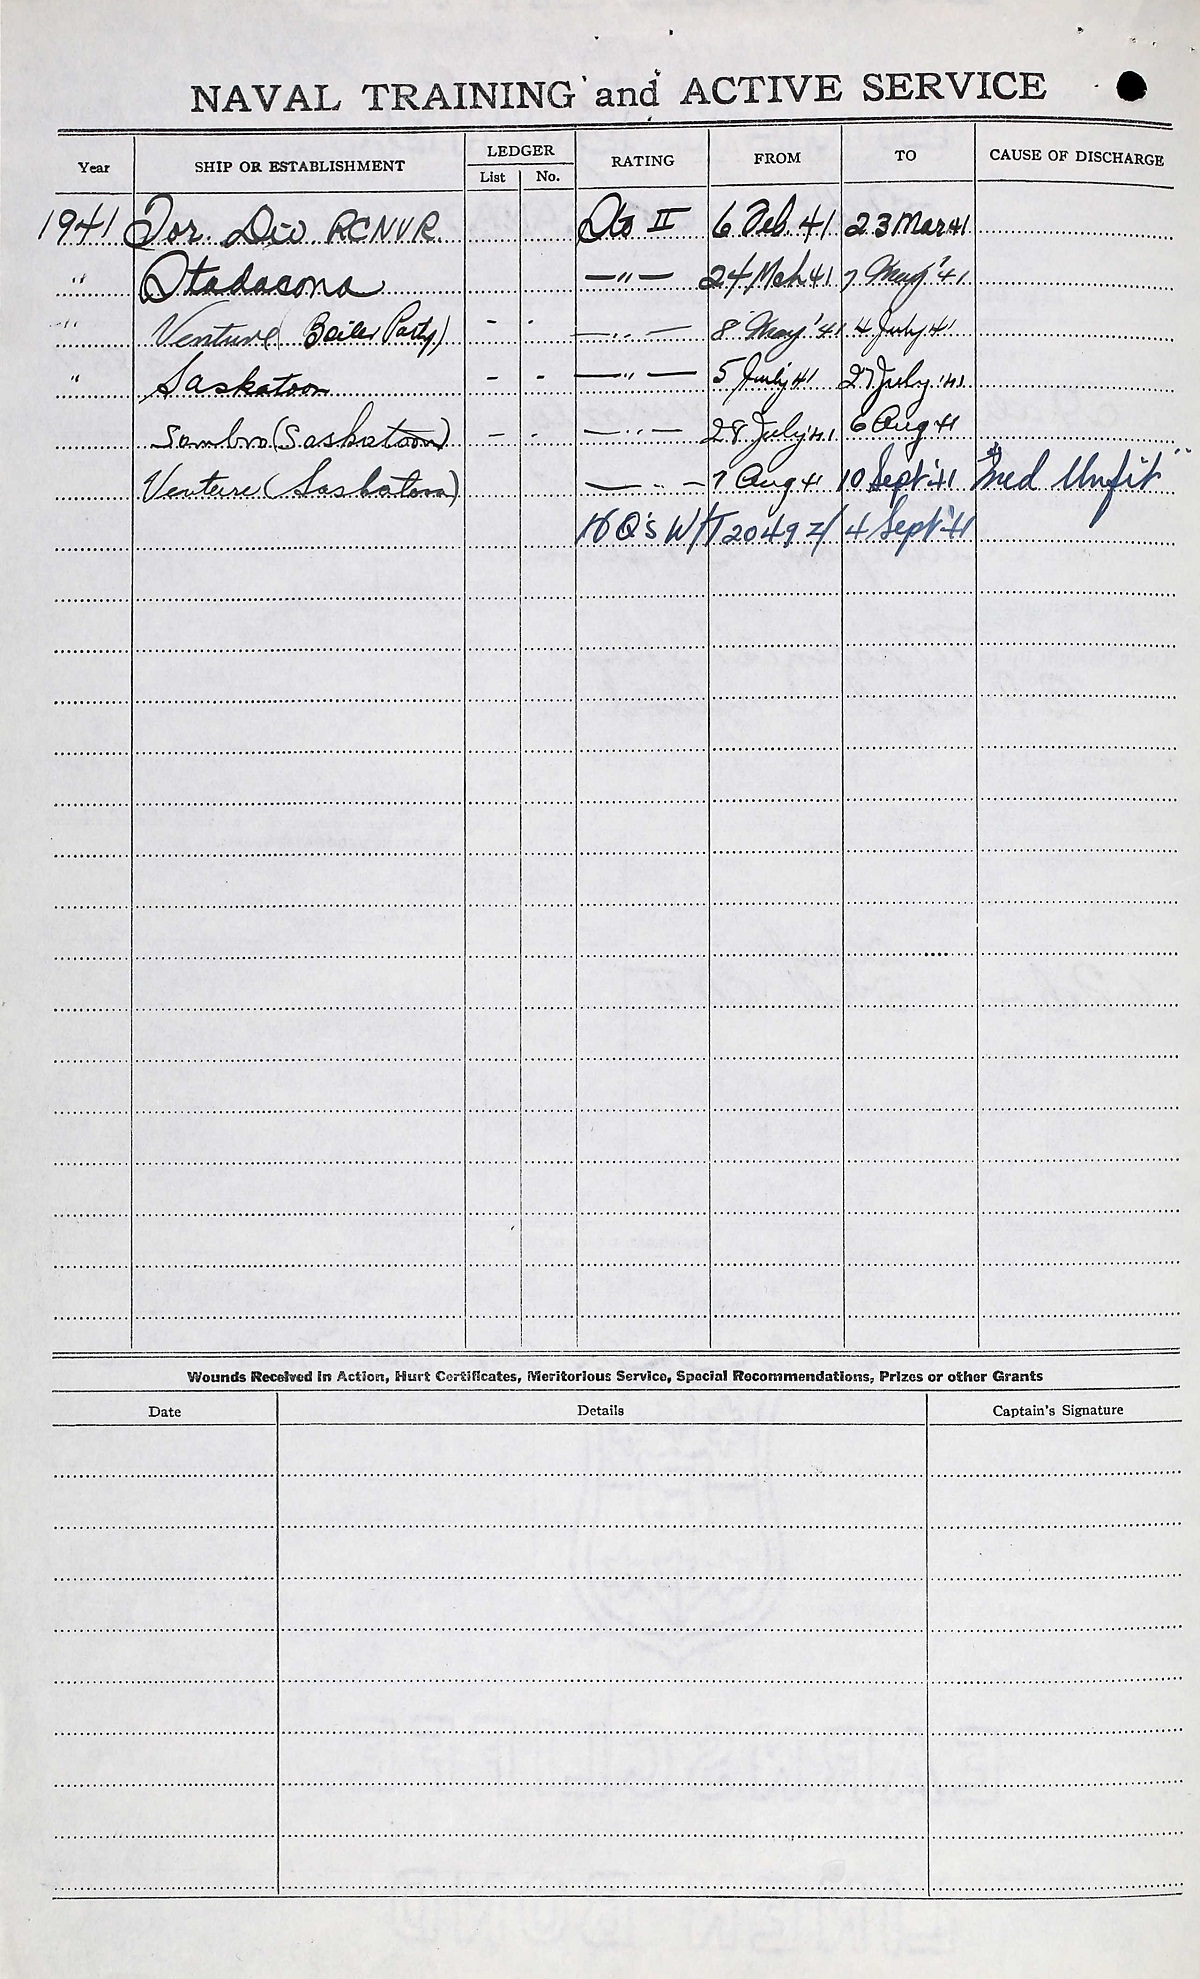 NAVAL TRAINING and ACTIVE SERVICE
Year SHIP OR ESTABLISHMENT LEDGER List No. RATING FROM TO CAUSE OF DISCHARGE
1941 Tor. Div RCNVR. Sto II 6 Feb. 41 23 Mar 41
" Stadacona —"— 24 Mch 41 7 May '41
" Venture (Boiler Party) - - —"— 8 May '41 4 July 41
" Saskatoon - - —"— 5 July 41 27 July '41
Sambro (Saskatoon) - - —"— 28 July '41 6 Aug 41
Venture (Saskatoon) —"— 7 Aug 41 10 Sept '41 "Med Unfit"
HQ's W/T 2049z/ 4 Sept '41
Wounds Received in Action, Hurt Certificates, Meritorious Service, Special Recommendations, Prizes or other Grants
Date Details Captain's Signature